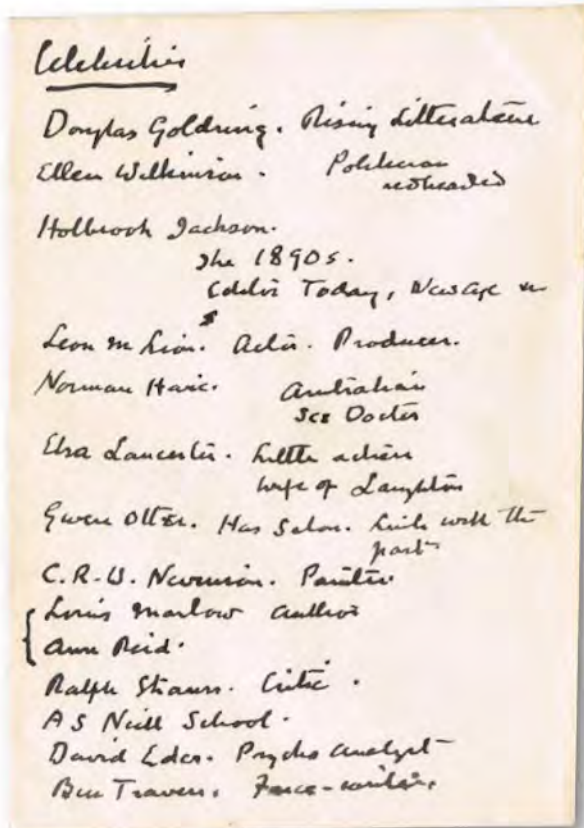 Celebrities
Douglas Goldring. Rising Litterateur
Ellen Wilkinson. Politician
redheaded
Holbrook Jackson.
The 1890s.
Editor Today, New Age
Leon M Lion. Actor. Producer.
Norman Haire. Australian
Sex Doctor
Elsa Lancester. Little actress
wife of Laughton
Gwen Otter. Has Salon. Link with the
past
C.R.W. Nevinson. Painter
Louis Marlow author
Ann Reid.
Ralph Straus. Critic.
A S Neill School.
David Eder. Psycho analyst
Ben Travers. Farce-writer.